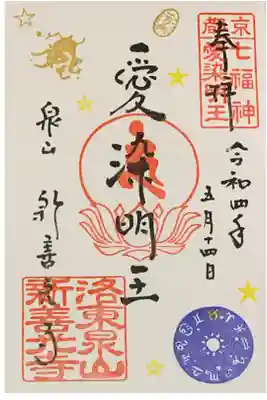 京七福神
都愛染明王
奉拝
令和四年
五月十四日
愛染明王
泉山 新善光寺
洛東泉山
新善光寺